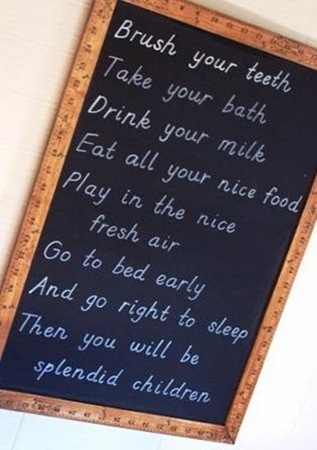 Brush your teeth
Take your bath
Drink your milk
Eat all your nice food
Play in the nice
fresh air
Go to bed early
And go right to sleep
Then you will be
splendid children